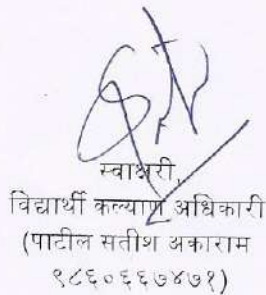 स्वाक्षरी,
विद्यार्थी कल्याण अधिकारी
(पाटील सतीश अकाराम
९८६०६६७४७१)